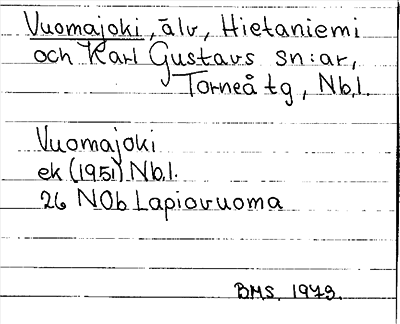 Vuomajoki, älv, Hietaniemi
och Karl Gustavs sn:ar,
Torneå tg, Nb.l.
Vuomajoki
ek (1951) Nb.l.
26 NOb Lapiovuoma
BMS. 1973.